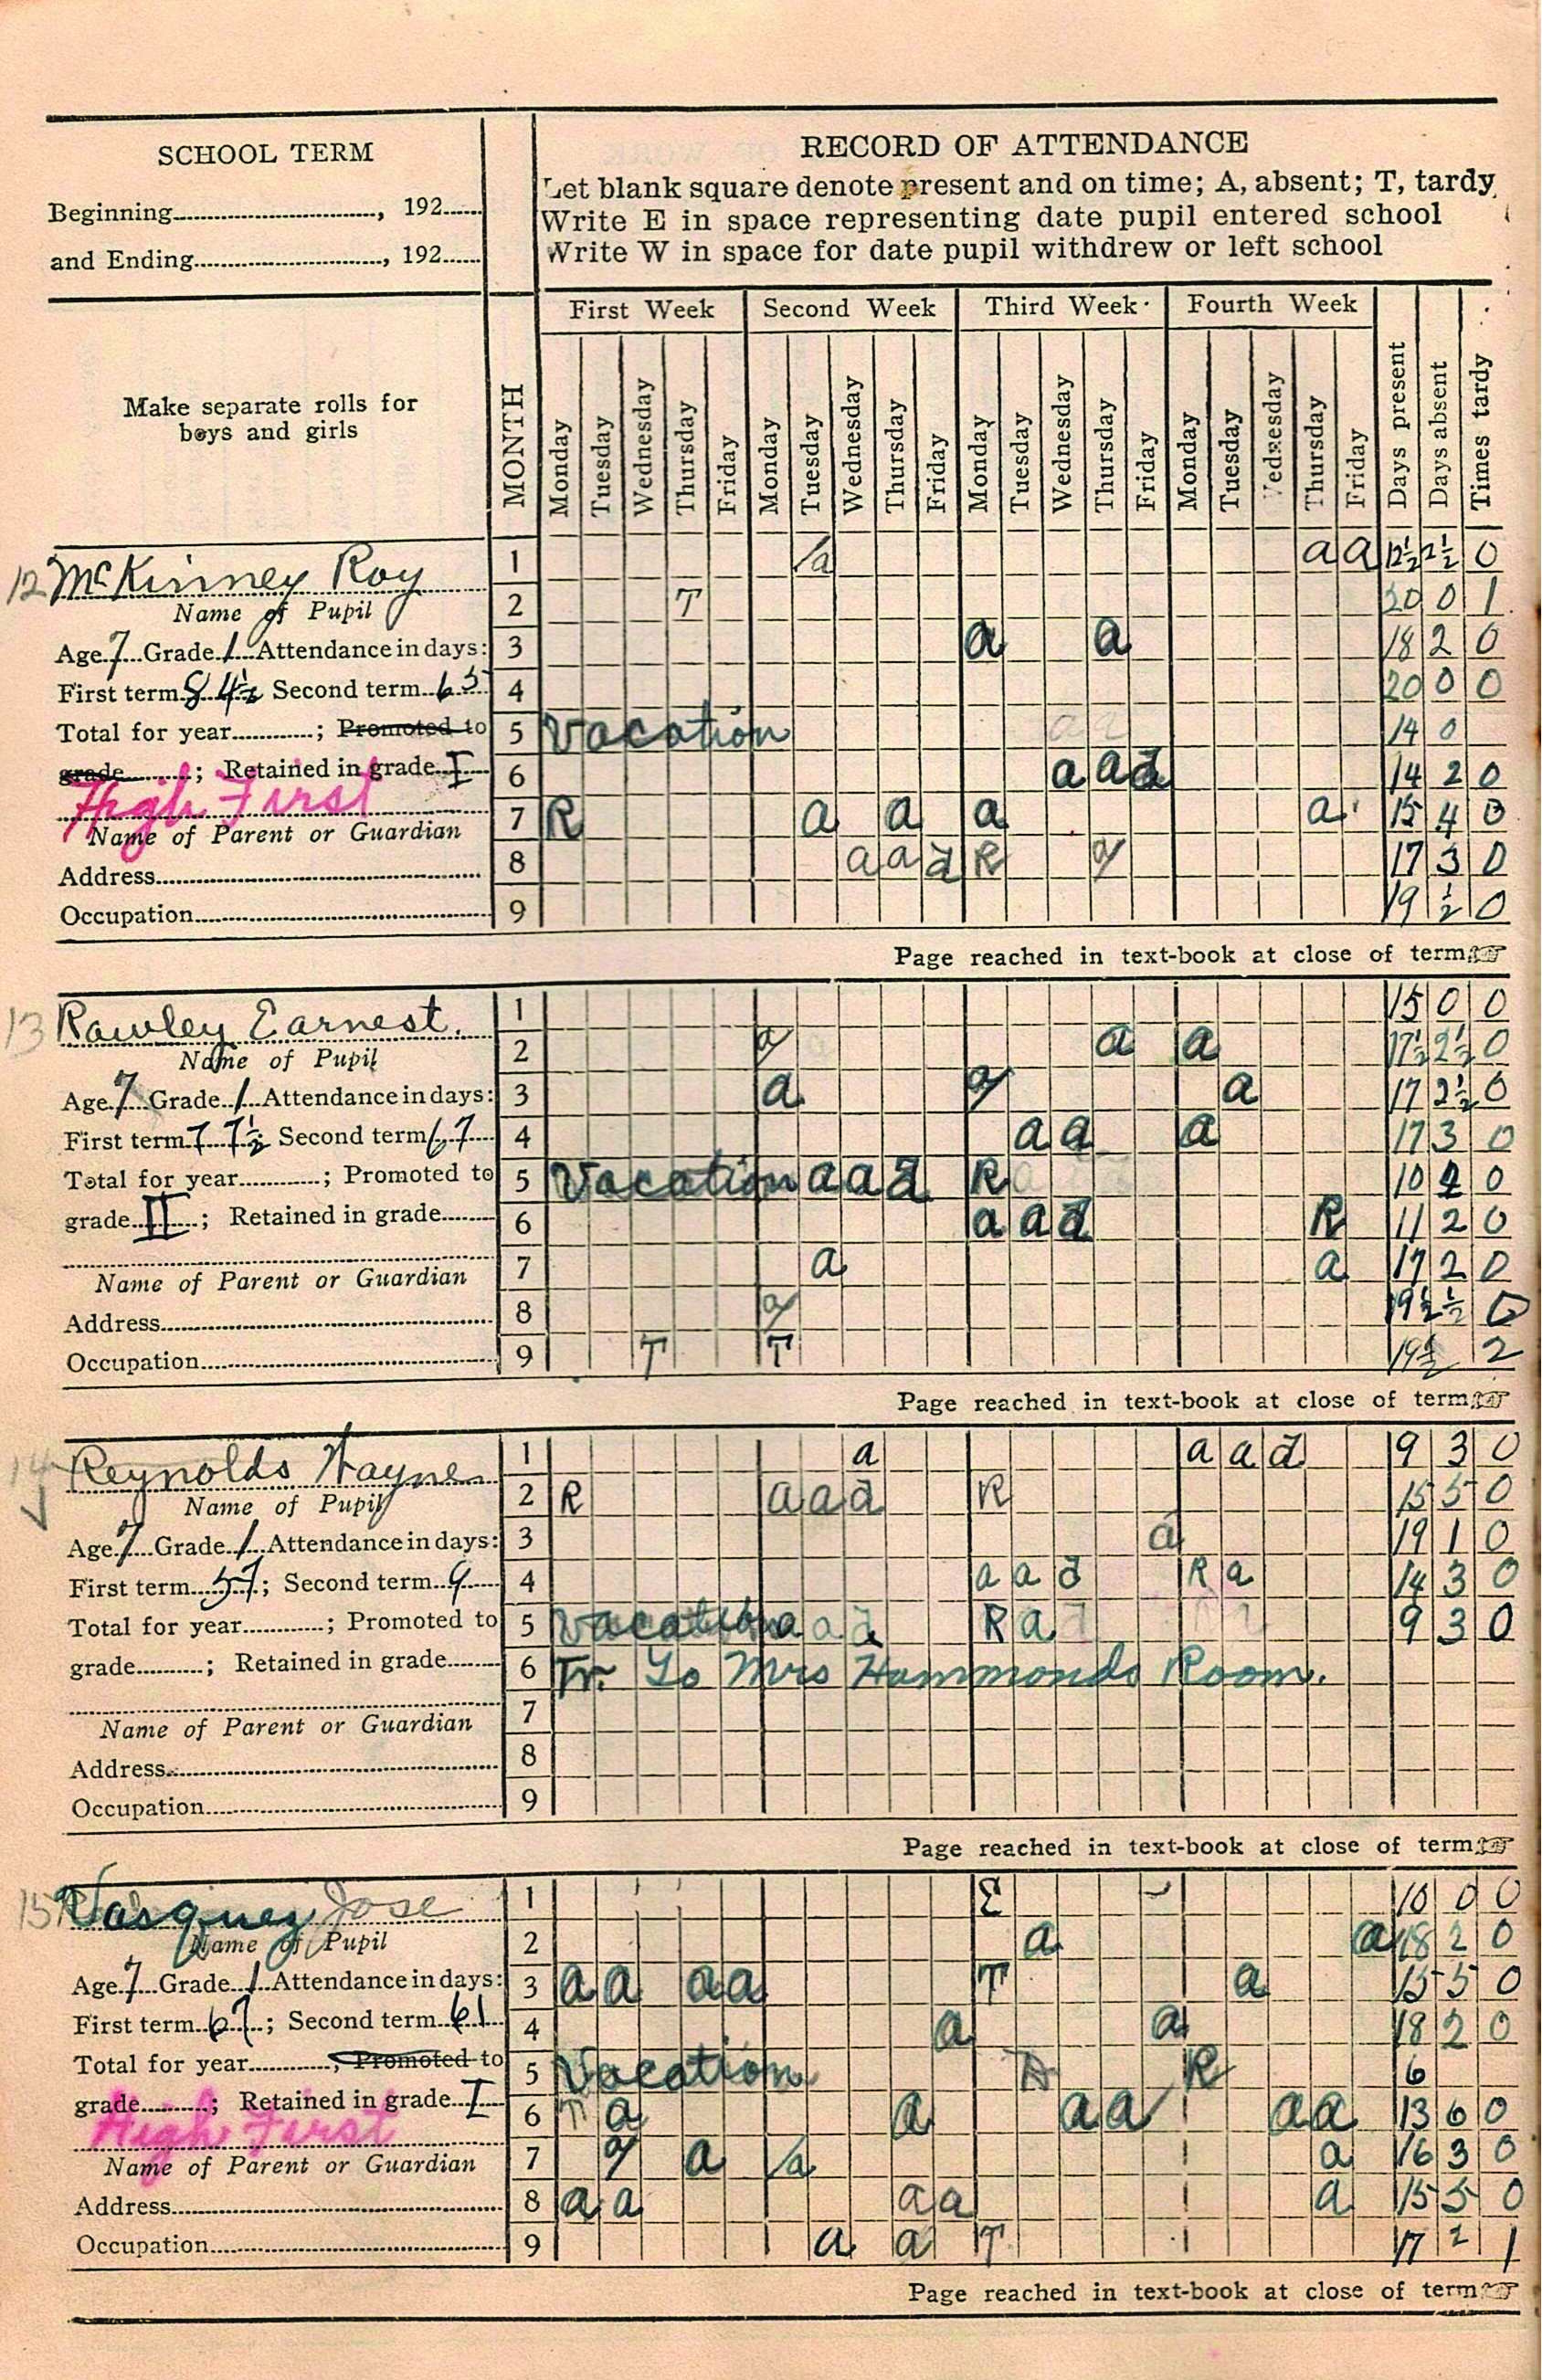 SCHOOL TERM
Beginning............, 192......
and Ending............, 192......
RECORD OF ATTENDANCE
Let blank square denote present and on time; A, absent; T, tardy
Write E in space representing date pupil entered school
Write W in space for date pupil withdrew or left school
Make separate rolls for
boys and girls
MONTH
First Week Second Week Third Week Fourth Week
Monday Tuesday Wednesday Thursday Friday Monday Tuesday Wednesday Thursday Friday Monday Tuesday Wednesday Thursday Friday Monday Tuesday Wednesday Thursday Friday Days present Days absent Times tardy
12 McKinney Roy
Name of Pupil
Age 7 Grade 1 Attendance in days:
First term 84½ Second term 65
Total for year............; Promoted to
grade............; Retained in grade I
High First
Name of Parent or Guardian
Address............
Occupation............
1 a a a 12½ 2½ 0
2 T 20 0 1
3 a a 18 2 0
4 20 0 0
5 Vacation a a 14 0
6 a a d 14 2 0
7 R a a a a 15 4 0
8 a a d R a 17 3 0
9 19 ½ 0
Page reached in text-book at close of term
13 Rawley Earnest.
Name of Pupil
Age 7 Grade 1 Attendance in days:
First term 77½ Second term 67
Total for year............; Promoted to
grade II; Retained in grade........
Name of Parent or Guardian
Address............
Occupation............
1 15 0 0
2 a a a 17½ 2½ 0
3 a a a 17 2½ 0
4 a a a 17 3 0
5 Vacation a a d R 10 2 0
6 a a d R 11 2 0
7 a a 17 2 0
8 a 19½ ½ 0
9 T T 19½ 2
Page reached in text-book at close of term
14 Reynolds Wayne
Name of Pupil
Age 7 Grade 1 Attendance in days:
First term 57; Second term 9
Total for year............; Promoted to
grade..........; Retained in grade........
Name of Parent or Guardian
Address............
Occupation............
1 a a a d 9 3 0
2 R a a d R 15 5 0
3 a 19 1 0
4 a a d R a 14 3 0
5 Vacation a a d R a d 9 3 0
6 Tr. To Mrs Hammonds Room.
7
8
9
Page reached in text-book at close of term
15 Vasquez Jose
Name of Pupil
Age 7 Grade 1 Attendance in days:
First term 67; Second term 61
Total for year............; Promoted to
grade..........; Retained in grade I
High First
Name of Parent or Guardian
Address............
Occupation............
1 E 10 0 0
2 a a 18 2 0
3 a a a a T a 15 5 0
4 a a 18 2 0
5 Vacation R 6
6 T a a a a a a 13 6 0
7 a a a a 16 3 0
8 a a a a a 15 5 0
9 a a T 17 2 1
Page reached in text-book at close of term